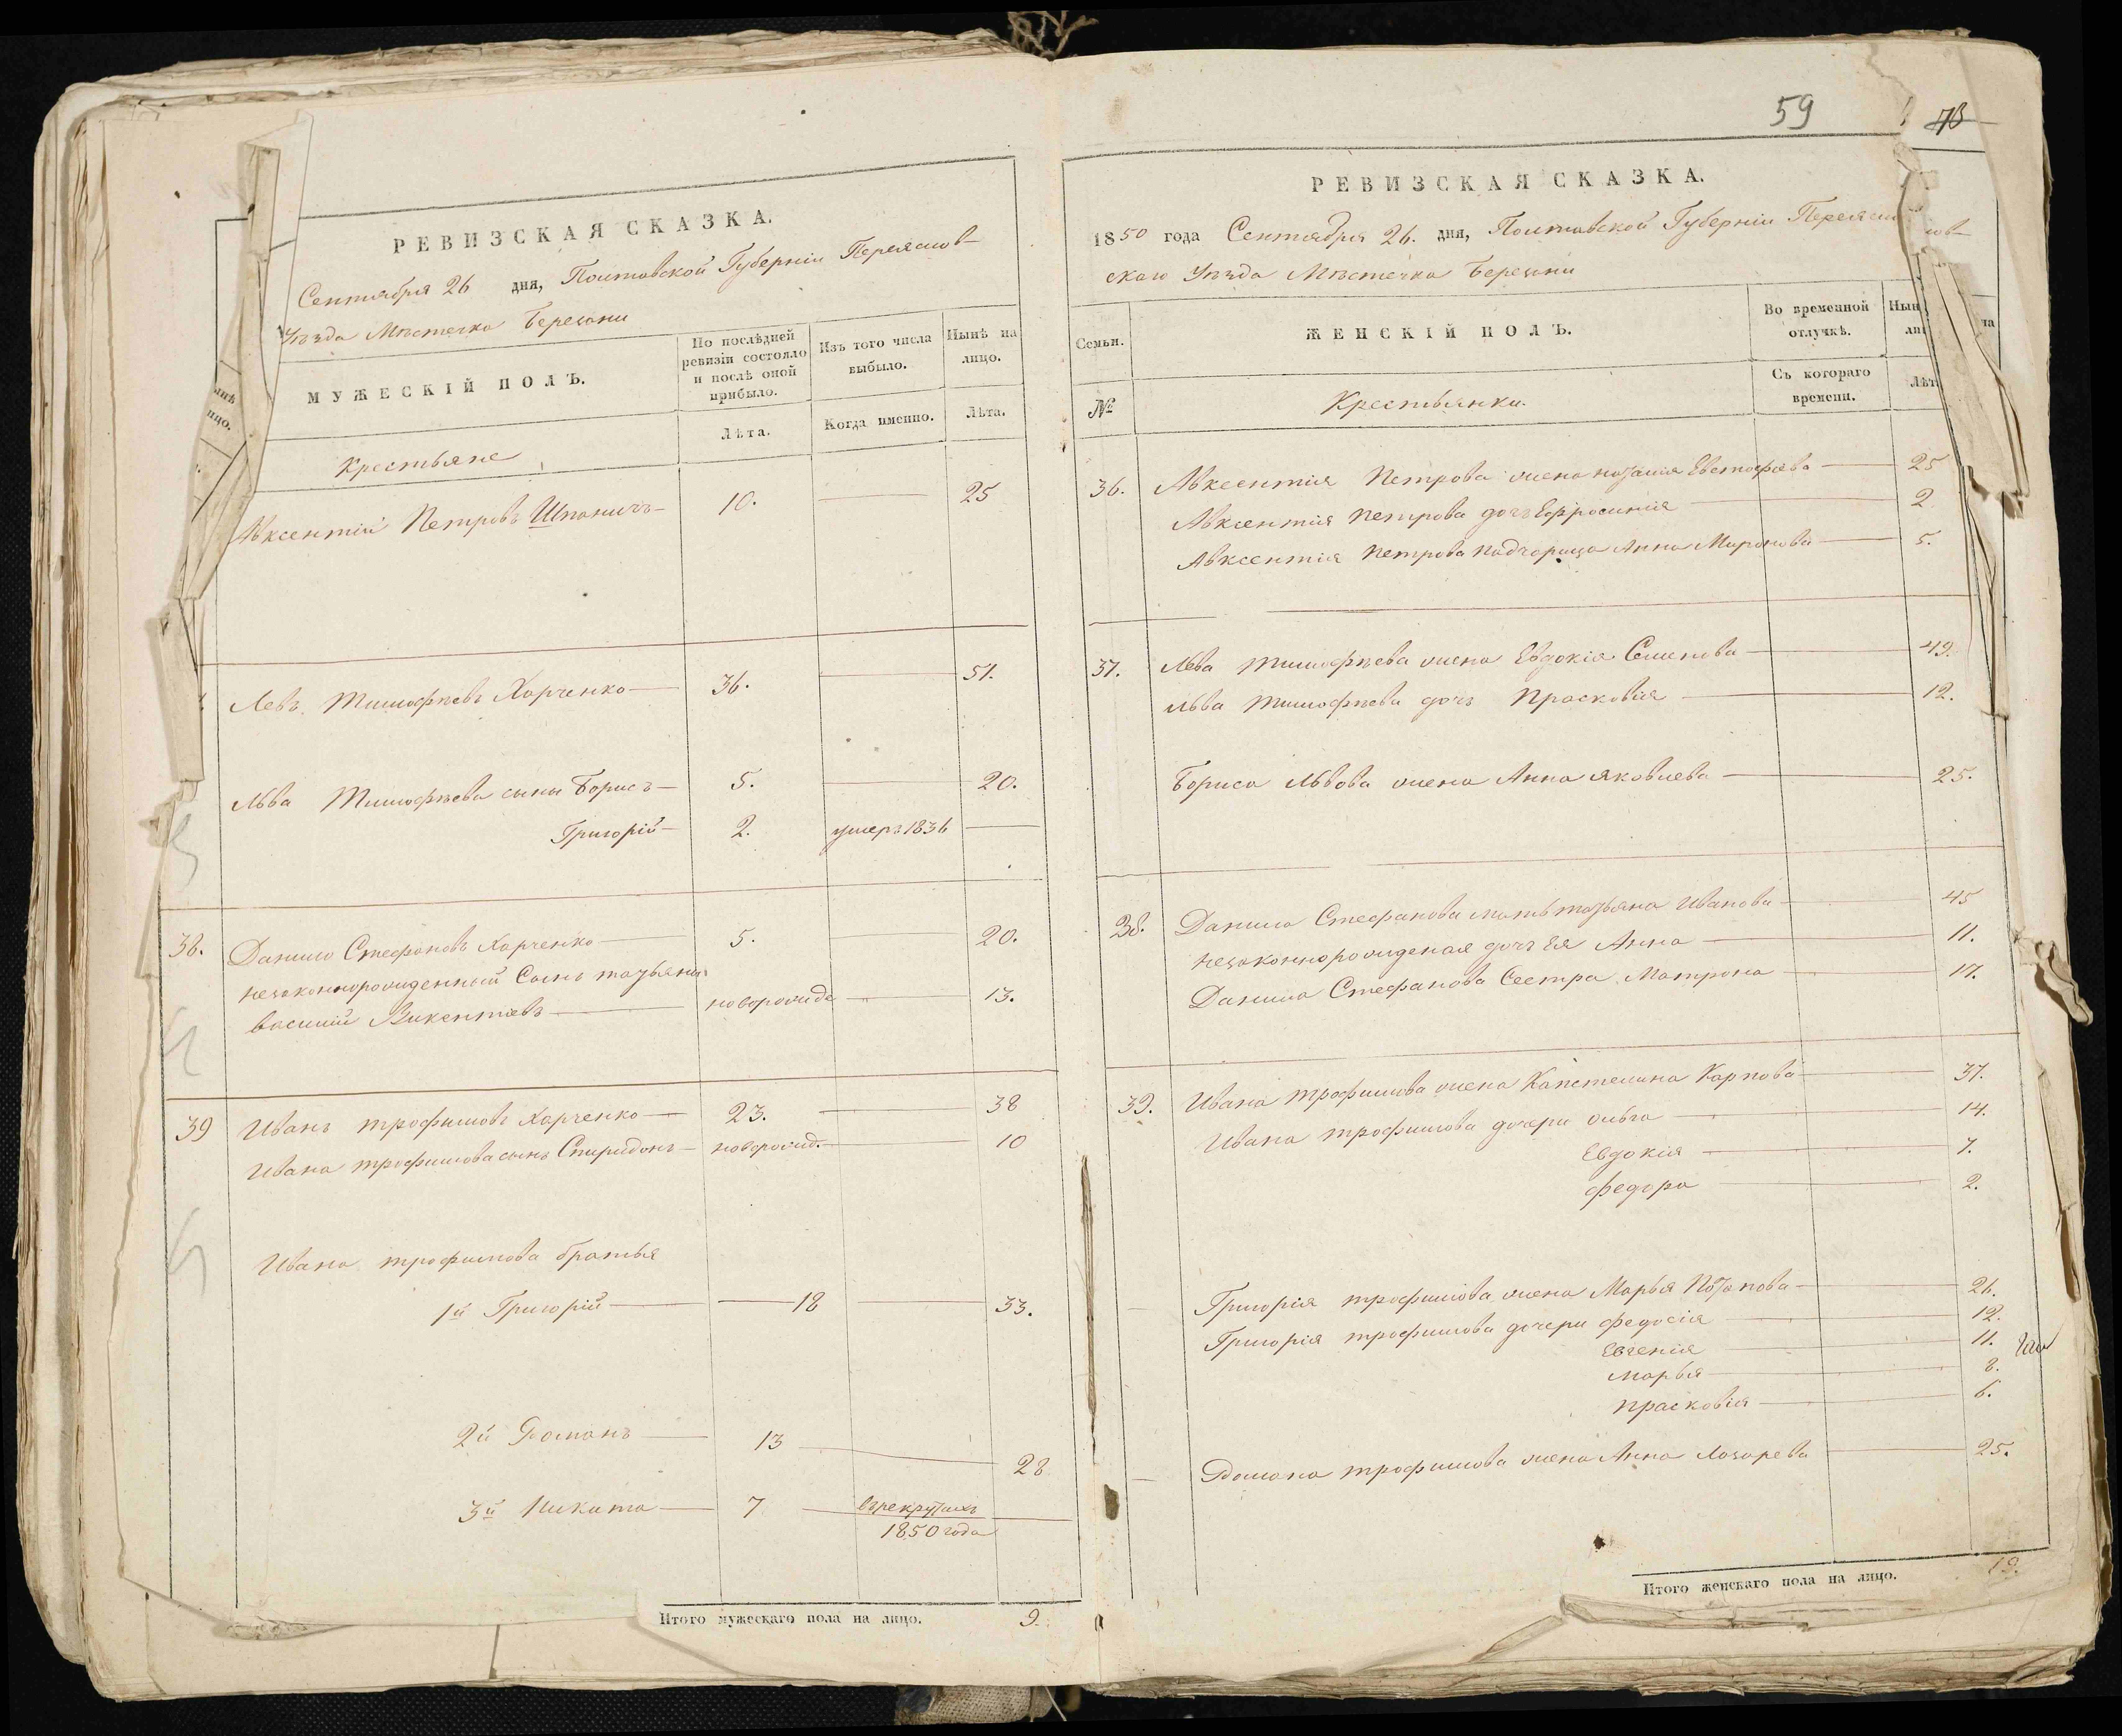 РЕВИЗСКАЯ СКАЗКА.
Сентября 26 дня, Полтавской Губерніи Переяслов-
Уѣзда Мѣстечка Березани
МУЖЕСКІЙ ПОЛЪ.
По послѣдней ревизіи состояло и послѣ оной прибыло.
Изъ того числа выбыло.
Нынѣ на лицо.
Лѣта.
Когда именно.
Лѣта.
Крестьяне
Авксентій Петровъ Шпаничъ — 10. — 25
Левъ Тимофѣевъ Харченко — 36. — 51.
Льва Тимофѣева сыны Борисъ — 5. — 20.
Григорій — 2. умеръ 1836 —
38. Данило Стефановъ Харченко — 5. — 20.
незаконнорожденный Сынъ татьяны
василій Викентіевъ — новорожде — 13.
39 Иванъ трофимовъ Харченко — 23. — 38
Ивана трофимова сынъ Спиридонъ — новорожд. — 10
Ивана трофимова братья
1й Григорій — 18 — 33.
2й Романъ — 13 — 28
3й Никита — 7 — въ рекрутахъ
1850 года
Итого мужескаго пола на лицо. 9.
59
73
РЕВИЗСКАЯ СКАЗКА.
1850 года Сентября 26. дня, Полтавской Губерніи Переяслов
скаго Уѣзда Мѣстечка Березани
Семьи.
ЖЕНСКІЙ ПОЛЪ.
Во временной отлучкѣ.
№
Крестьянки.
Съ котораго времени.
36. Авксентія Петрова жена наталія Евстафіева — 25
Авксентія Петрова дочь Ефросинія — 2
Авксентія Петрова Падчерица Анна Миронова — 5.
37. Льва Тимофѣева жена Евдокія Семенова — 49.
Льва Тимофѣева дочь Прасковія — 12.
Бориса Львова жена Анна яковлева — 25.
38. Данила Стефанова мать татьяна Иванова — 45
незаконнорожденая дочь Ея Анна — 11.
Данила Стефанова Сестра Матрона — 17.
39. Ивана трофимова жена Капетелина Карпова — 37.
Ивана трофимова дочери ольга — 14.
Евдокія — 7.
федора — 2.
Григорія трофимова жена Марья Потапова — 26.
Григорія трофимова дочери федосія — 12.
Евгенія — 11.
марья — 8.
прасковія — 6.
Романа трофимова жена Анна Лазарева — 25.
Итого женскаго пола на лицо. 19.